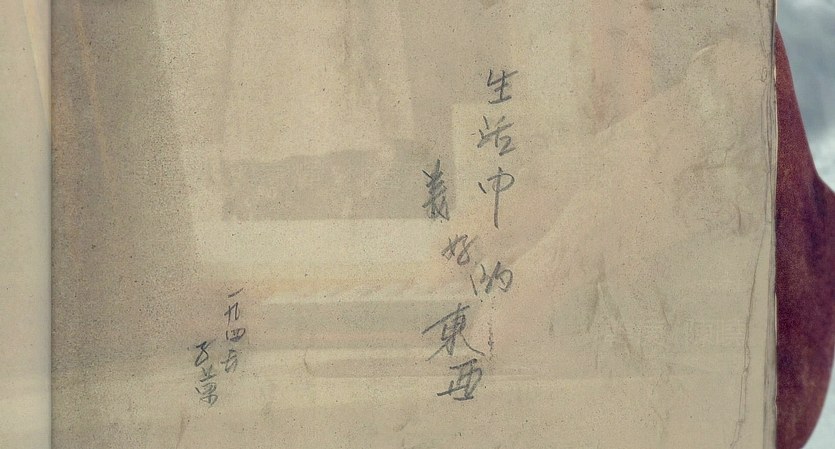 生活中
美好的
東西
一九四五